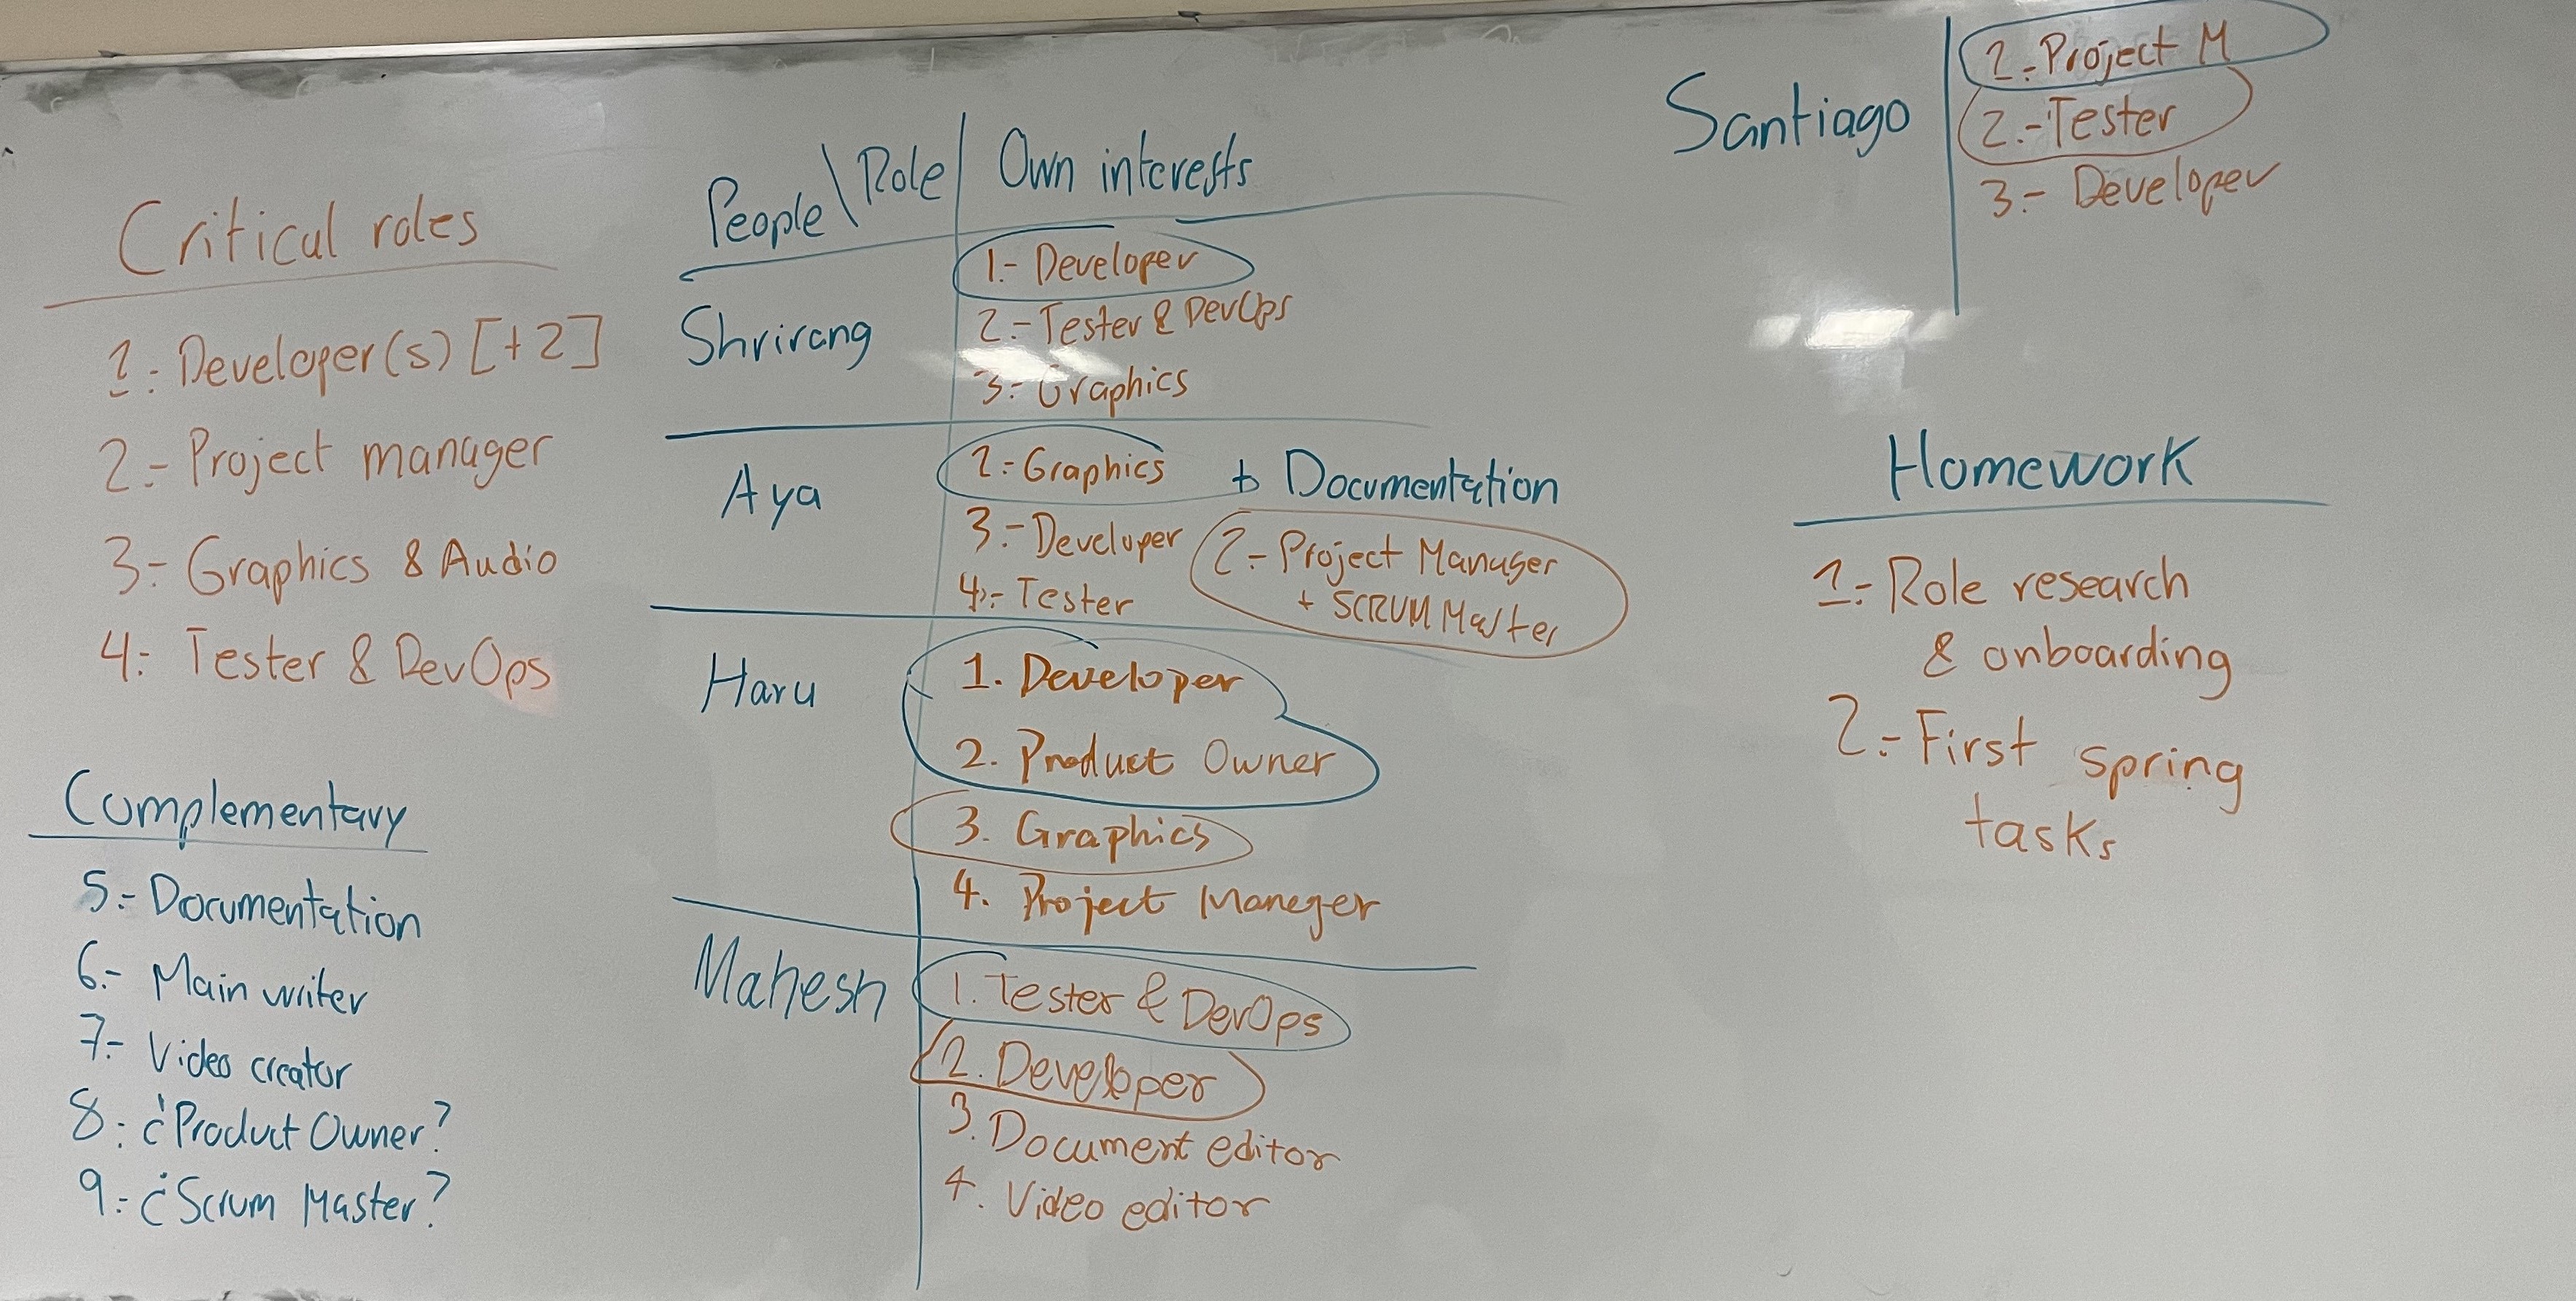 Critical roles
1.- Developer(s) [+2]
2.- Project manager
3.- Graphics & Audio
4.- Tester & DevOps
Complementary
5.- Documentation
6.- Main writer
7.- Video creator
8.- ¿Product Owner?
9.- ¿Scrum Master?
People\Role
Own interests
Shrirang
1.- Developer
2.- Tester & DevOps
3.- Graphics
Aya
1.- Graphics + Documentation
3.- Developer
2.- Project Manager
+ SCRUM Master
4.- Tester
Haru
1. Developer
2. Product Owner
3. Graphics
4. Project Maneger
Mahesh
1. Tester & DevOps
2. Developer
3. Document editor
4. Video editor
Santiago
1.- Project M
2.- Tester
3.- Developer
Homework
1.- Role research
& onboarding
2.- First spring
tasks